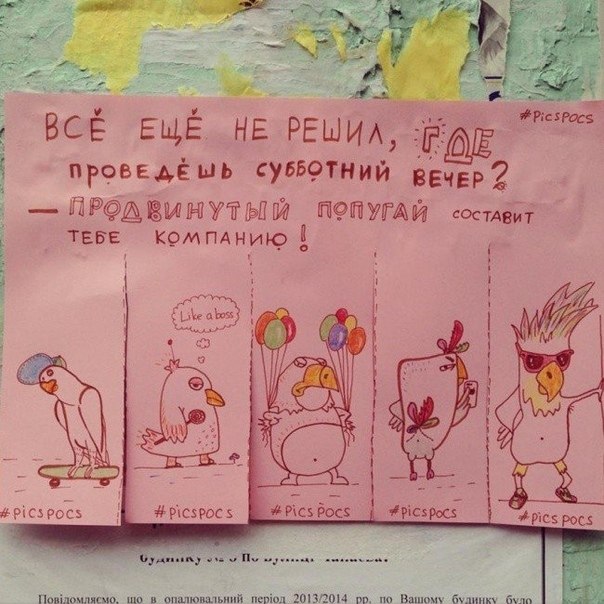 #PicsPocs
ВСЁ ЕЩЁ НЕ РЕШИЛ, ГДЕ
ПРОВЕДЁШЬ СУББОТНИЙ ВЕЧЕР?
— ПРОДВИНУТЫЙ ПОПУГАЙ СОСТАВИТ
ТЕБЕ КОМПАНИЮ!
Like a boss
#PicsPocs #PicsPocs #PicsPocs #PicsPocs #PicsPocs
будинку № 5 по вулиці
Повідомляємо, що в опалювальний період 2013/2014 рр. по Вашому будинку було